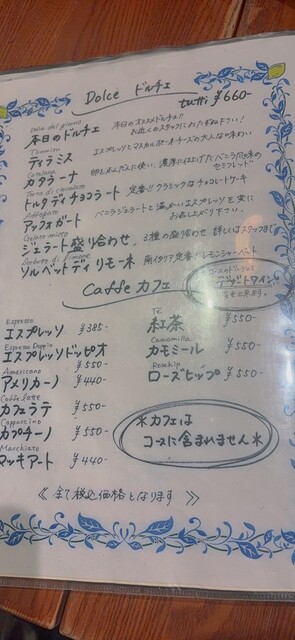 Dolce ドルチェ
tutti ¥660-
Dolce del giorno
本日のドルチェ 本日のオススメドルチェ!!
お近くのスタッフにおたずね下さい!
Tiramisu
ティラミス エスプレッソとマスカルポーネチーズの大人な味わい
Catalana
カタラーナ 卵をふんだんに使い、濃厚に仕上げたバニラ風味のセミフレッド
Torta di cioccolato
トルタディチョコラート 定番!! クラシックなチョコレートケーキ
Affogato
アッフォガート バニラジェラートと温かいエスプレッソを一緒に
お召し上がり下さい。
Gelato misto
ジェラート盛り合わせ 3種の盛り合わせ 詳しくはスタッフまで
Sorbetto di limone
ソルベットディリモーネ 南イタリア定番!! レモンシャーベット
デザートワイン
Caffe カフェ
Espresso
エスプレッソ ¥385-
Espresso Doppio
エスプレッソドッピオ
¥550-
Americano
アメリカーノ ¥440-
Caffe latte
カフェラテ ¥550-
Cappuccino
カプチーノ ¥550-
Macchiato
マッキアート ¥440-
Te
紅茶 ¥550-
Camomilla
カモミール ¥550-
Rosehip
ローズヒップ ¥550-
*カフェは
コースに含まれません*
《 全て税込価格となります 》